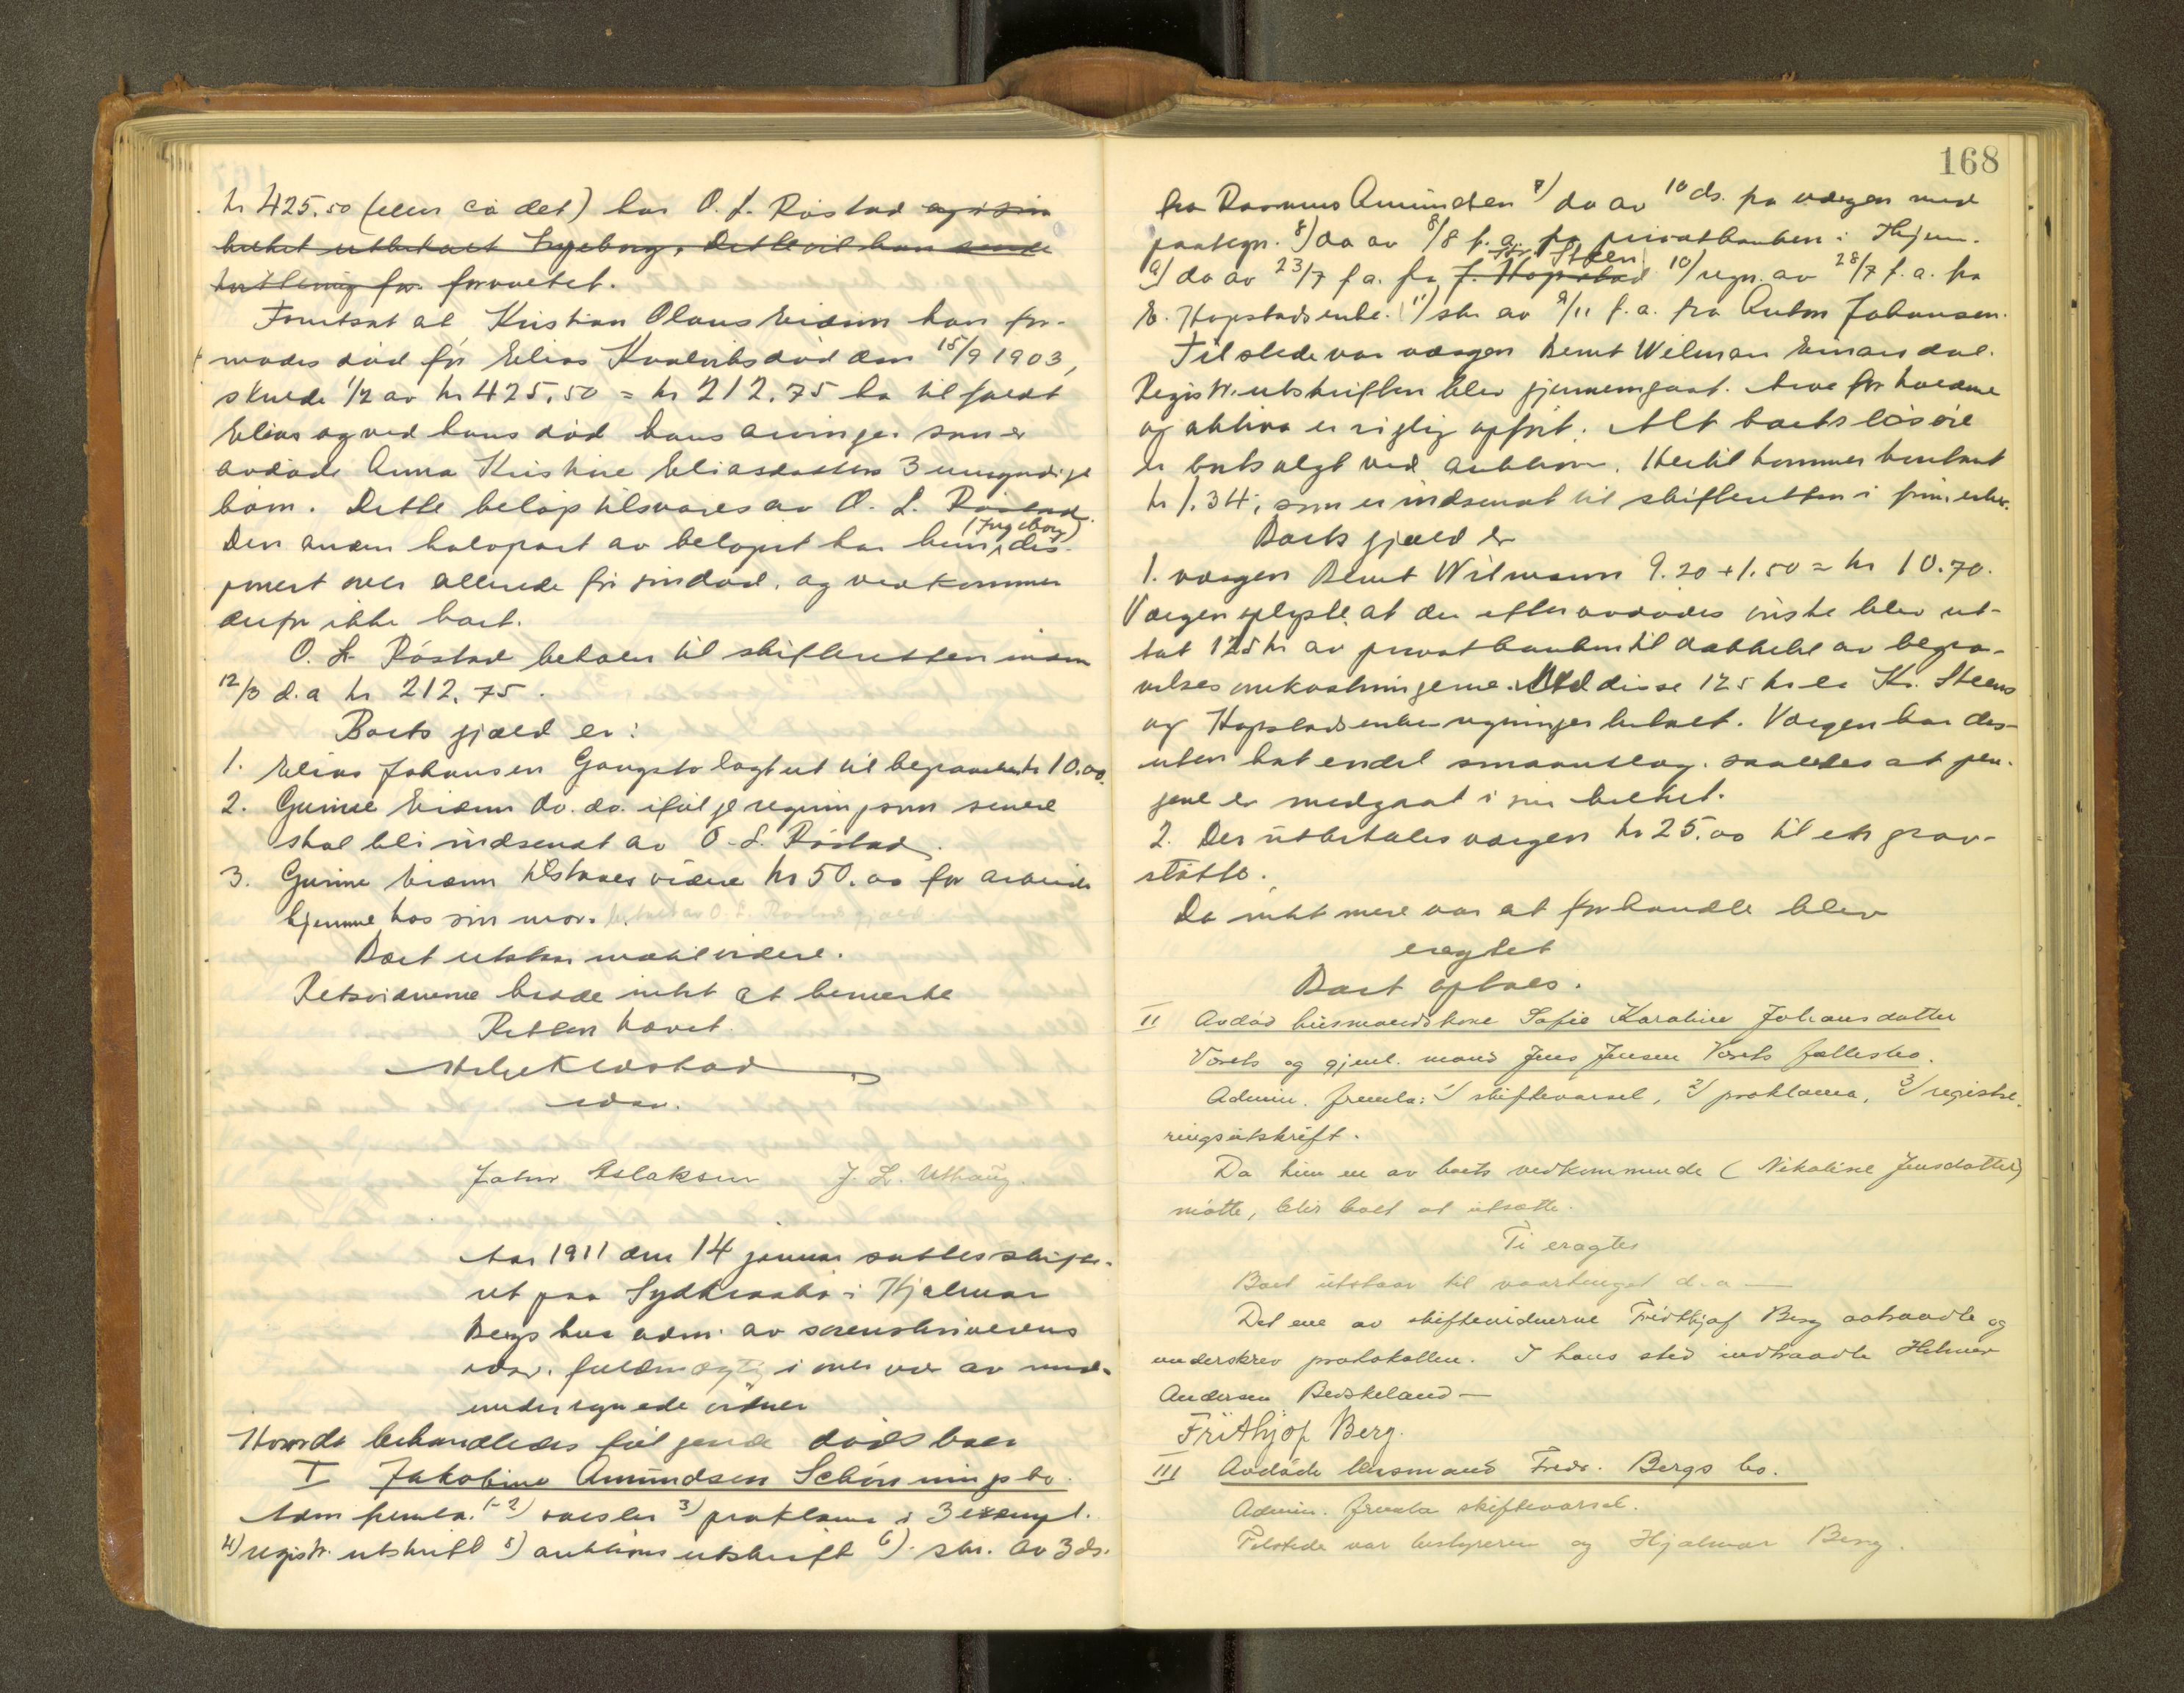 kr 425.50 (eller ca det) har O. L. Røstad og i sin
helhet utbetalt Ingeborg. Dette vil han sende
kvittering for forvaltet.
Forutsat at Kristian Olaus Eidem har for-
modes død før Elias Kvalviks død den 15/9 1903,
skulde 1/2 av kr 425.50 = kr 212.75 ha tilfaldt
Elias og ved hans død hans arvinger som er
avdøde Anna Kristine Eliasdatters 3 umyndige
børn. Dette beløp tilsvares av O. L. Røstad.
Den anden halvpart av beløpet har hun (Ingeborg) dis-
ponert over allerede før sin død, og vedkommer
derfor ikke boet.
O. L. Røstad betaler til skifteretten innen
12/3 d.a kr 212.75.
Boets gjæld er:
1. Elias Johansen Gangstø lagt ut til begravelse kr 10.00
2. Gurine Eidem do. do. ifølge regning som senere
skal bli indsendt av O. L. Røstad.
3. Gurine Eidem tilstaaes videre kr 50.00 for arbeide
hjemme hos sin mor. betalt av O. L. Røstads gjæld.
Boet utstaar indtil videre.
Retsvidnerne hadde intet at bemerke
Retten hævet.
Helge Klæstad
edsv.
John Aslaksen J. L. Uthaug.
Aar 1911 den 14 januar sattes skifte-
ret paa Sydkraakø i Hjalmar
Bergs hus adm. av sorenskriverens
edsv. fuldmægtig i overvær av med-
undertegnede vidner
Hvorda behandledes følgende dødsboer
I Jakobine Amundsen Schønnings bo.
Adm fremla. 1-2) varsler 3) proklama i 3 exempl.
4) registr. utskrift 5) auktions utskrift 6) skr. av 3 ds.
168
fra Rasmus Amundsen 7) do av 10 ds. fra værgen med
paategn. 8) do av 8/8 f.a. fra privatbanken i Thjem.
9) do av 23/7 f.a. fra J. Hopstad Kr. Steen 10) regn. av 28/7 f.a. fra
E. Hopstads enke. 11) skr av 9/11 f.a. fra Anton Johansen.
Tilstede var værgen Bernt Wilman Einarsdal.
Registr. utskriften blev gjennemgaat. Arveforholdene
og aktiva er rigtig opført. Alt boets løsøre
er bortsolgt ved auktion. Hertil kommer kontant
kr 1.34, som er indsendt til skifteretten i frimerker.
Boets gjæld er
1. værgen Bernt Wilmann 9.20 + 1.50 = kr 10.70.
Værgen oplyste at der efter avdødes ønske blev ut-
tat 125 kr av privatbanken til dækkelse av begra-
velsesomkostningerne. Med disse 125 kr er Kr. Steens
og Hopstads enkes regninger betalt. Værgen har des-
uten hat endel smaautlæg. saaledes at pen-
gene er medgaat i sin helhet.
2. Der utbetales værgen kr 25.00 til en grav-
støtte.
Da intet mere var at forhandle blev
eragtet
Boet optaes.
II Avdød husmandskone Sofie Karoline Johansdatter
Vorets og gjenl. mand Jens Jensen Vorets fællesbo.
Admin. fremla: 1) skiftevarsel, 2) proklama, 3) registre-
ringsutskrift.
Da kun en av boets vedkommende (Nikoline Jensdatter)
møtte, blir boet at utsætte.
Ti eragtes
Boet utstaar til vaartinget d.a —
Det ene av skiftevidnerne Fridthjof Berg avtraadte og
underskrev protokollen. I hans sted indtraadte Helmer
Andersen Beskeland —
Frithjof Berg.
III Avdøde husmand Fredr. Bergs bo.
Admin. fremla skiftevarsel.
Tilstede var bestyreren og Hjalmar Berg.